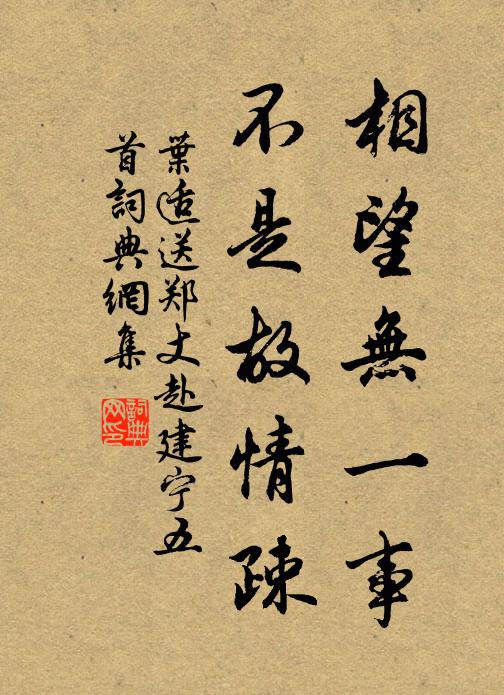 相望無一事
不是故情疎
葉适送郑丈赴建宁五
首詞典網集
詞典
网印